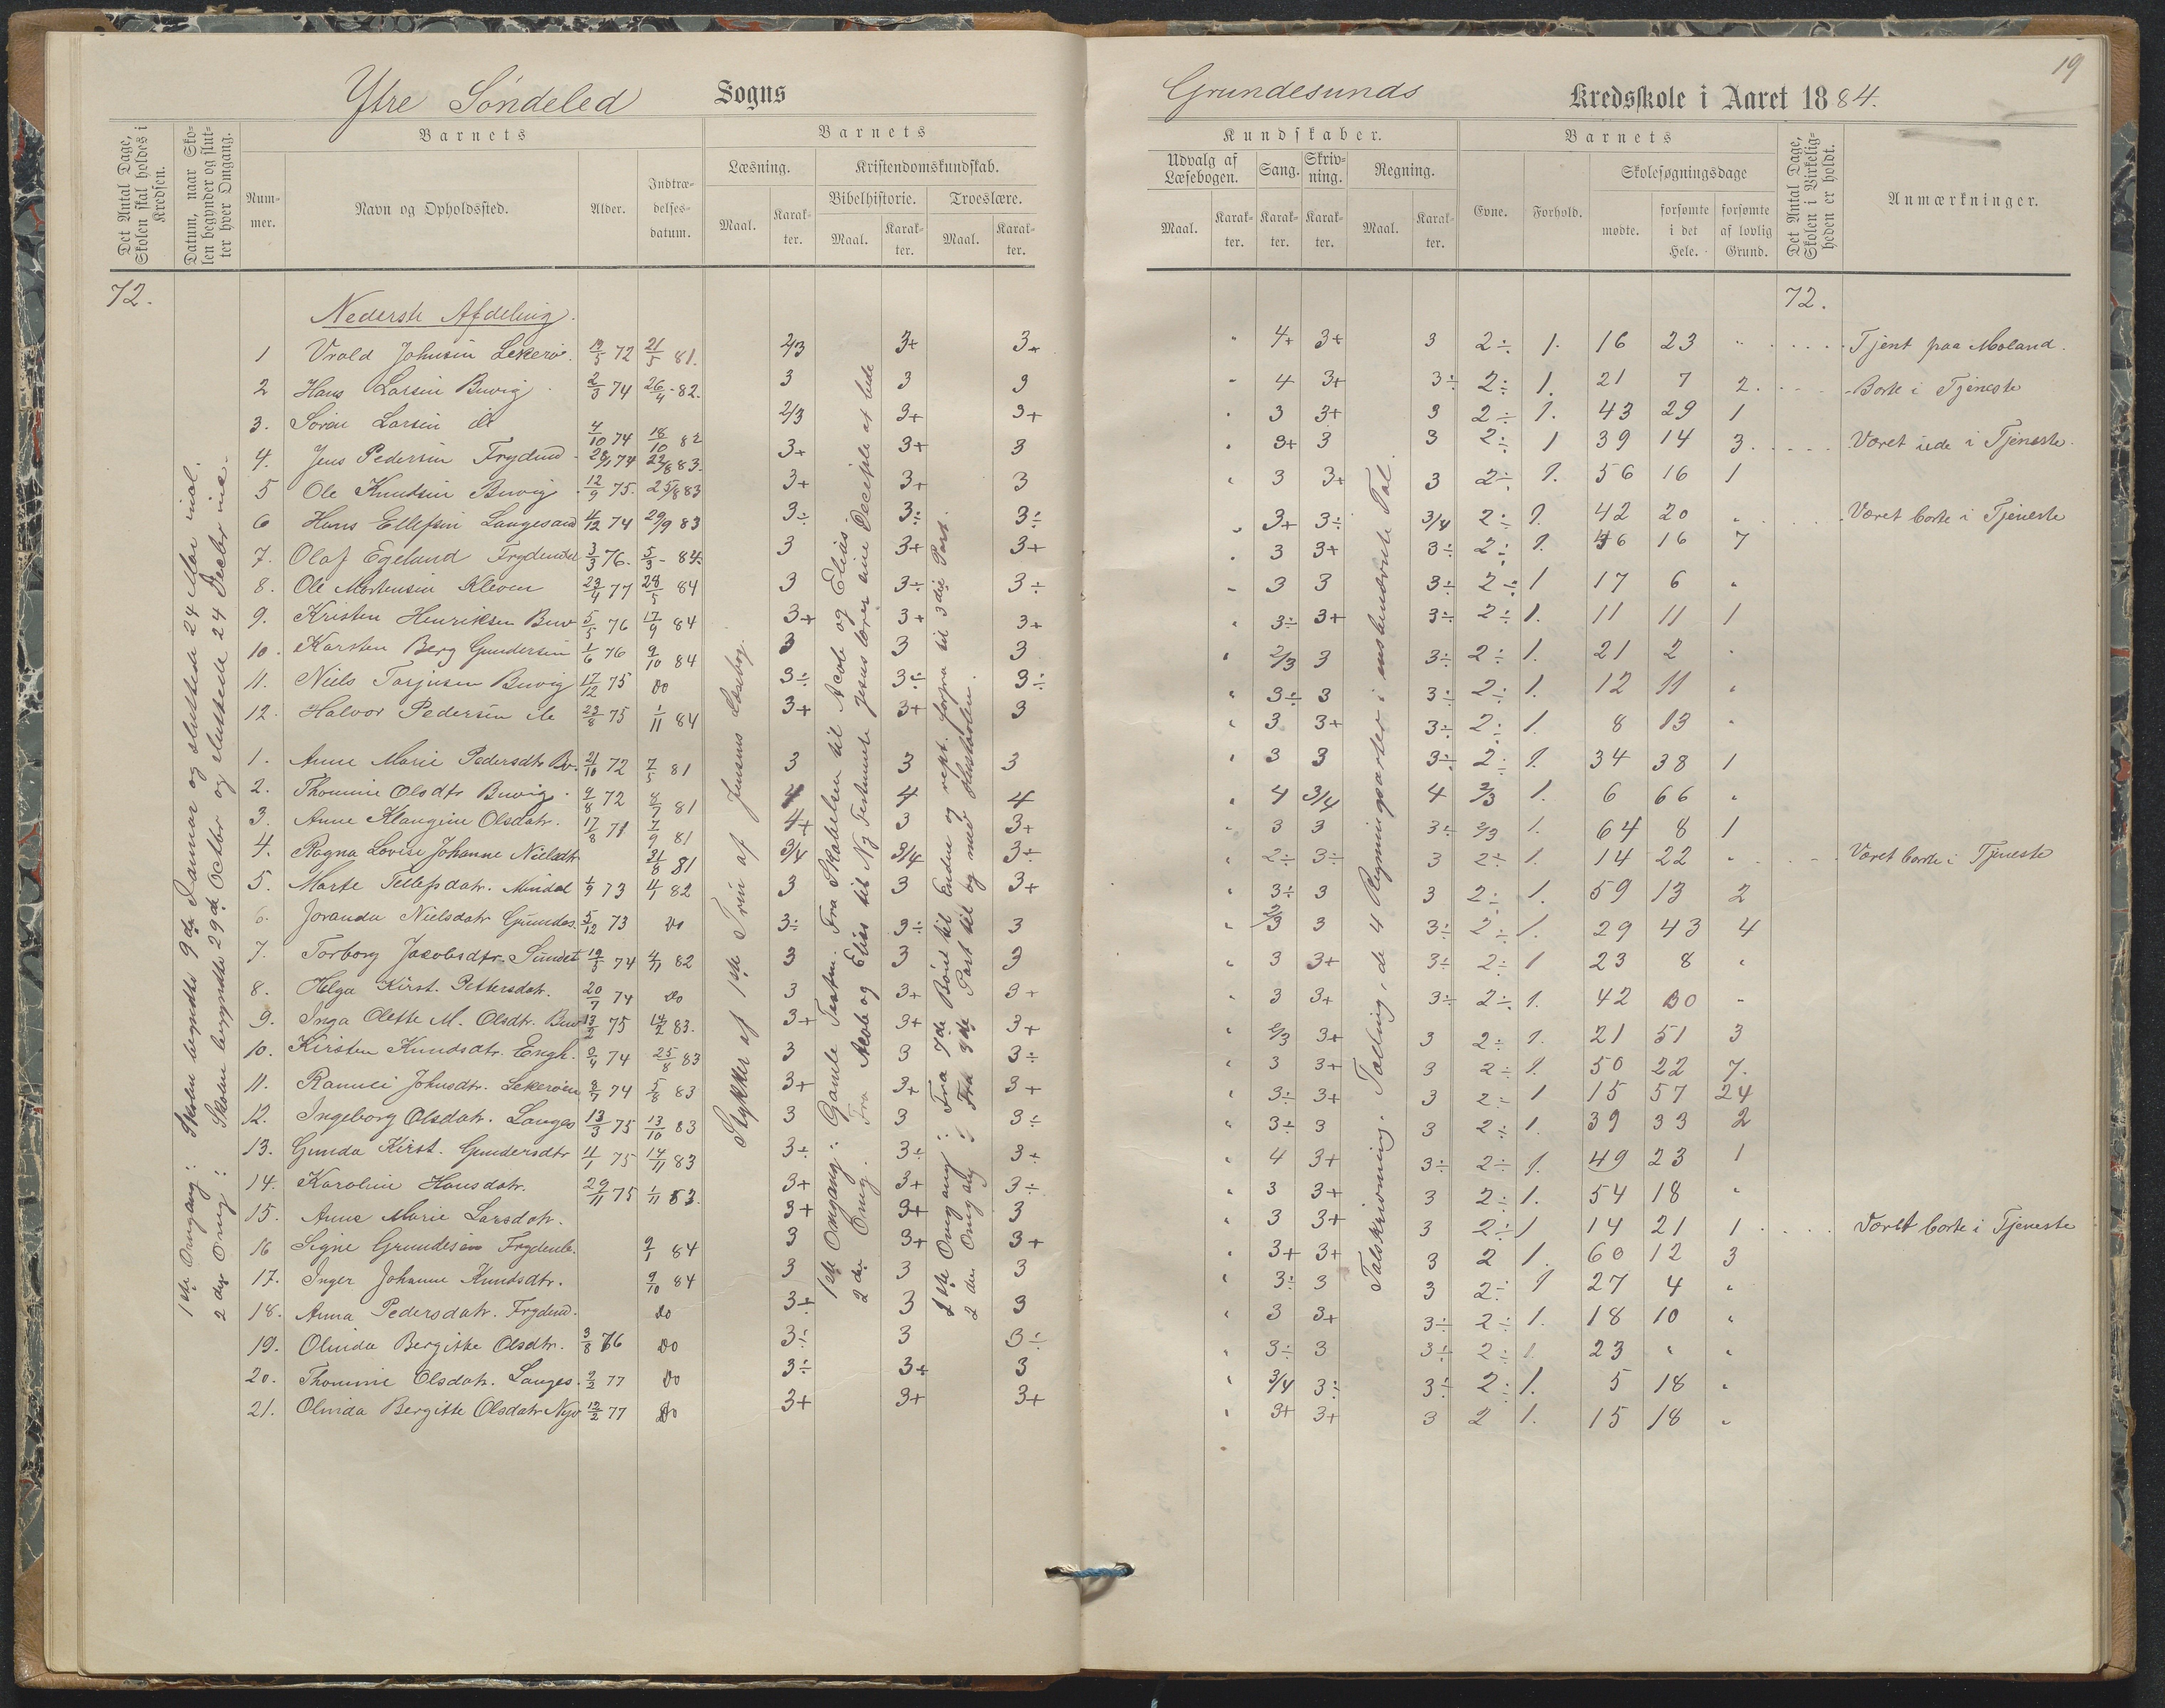 Ytre Söndeled Sogns
Grundesunds Kredsskole i Aaret 1884.
19
Det Antal Dage, Skolen skal holdes i Kredsen.
Datum, naar Skolen begynder og slutter hver Omgang.
Barnets
Nummer.
Navn og Opholdssted.
Alder.
Indtrædelsesdatum.
Barnets
Læsning.
Maal.
Karakter.
Kristendomskundskab.
Bibelhistorie.
Maal.
Karakter.
Troeslære.
Maal.
Karakter.
Kundskaber.
Udvalg af Læsebogen.
Maal.
Karakter.
Sang.
Karakter.
Skrivning.
Karakter.
Regning.
Maal.
Karakter.
Barnets
Evne.
Forhold.
Skolesøgningsdage
mødte.
forsømte i det Hele.
forsømte af lovlig Grund.
Det Antal Dage, Skolen i Virkeligheden er holdt.
Anmærkninger.
72.
72.
1ste Omgang: Skolen begyndte 9de Januar og sluttede 24 Mai incl.
2 den Omg: Skolen begyndte 29de Octbr og sluttede 24 Decbr inc.
Stykker af 1ste Trin af Jensens Læsebog.
1ste Omgang: Gamle Testm. Fra Skabelsen til Acab og Elias
2 den Omg. Fra Acab og Elias til Ny Testmente Jesus lærer sine Disciple at bede
1ste Omgang: Fra 7de Bönn til Enden og rept. forfra til 3die Part.
2 den Omg Fra 3die Part til og med Hustavlen.
Talskrivning. Tælling, de 4 Regningsarter i ensbenævnte Tal.
Nederste Afdeling.
1 Vrold Johnsen Lekerøe. 19/5 72 21/5 81. 2/3 3+ 3+ " 4+ 3+ 3 2÷ 1. 16 23 " Tjent paa Moland.
2 Hans Larsen Buvig 2/3 74 26/4 82. 3 3 3 " 4 3+ 3÷ 2÷ 1. 21 7 2. Borte i Tjeneste
3. Sören Larsen do 4/10 74 18/10 82 2/3 3+ 3+ " 3 3+ 3 2÷ 1. 43 29 1
4. Jens Pedersen Frydend 74 22/8 83. 3+ 3+ 3 " 3+ 3 3 2÷ 1 39 14 3. Været ude i Tjeneste.
5 Ole Knudsen Buvig 12/9 75. 25/8 83 3+ 3+ 3 " 3 3+ 3 2÷ 1. 56 16 1
6 Hans Ellefsen Langesand 4/12 74 29/9 83 3÷ 3÷ 3÷ " 3+ 3÷ 3/4 2÷ 1. 42 20 " Været borte i Tjeneste
7. Olaf Egeland Frydendal 3/3 76. 5/3 84. 3 3+ 3+ " 3 3+ 3÷ 2÷ 1. 46 16 7
8. Ole Mortensen Kleven 23/4 77 28/5 84 3 3÷ 3÷ " 3 3 3÷ 2÷ 1 17 6 "
9. Kristen Henriksen Buv 5/5 76 17/9 84 3+ 3+ 3+ " 3÷ 3+ 3÷ 2÷ 1. 11 11 1
10. Karsten Berg Gundersen 1/6 76 9/10 84 3 3 3 " 2/3 3 3÷ 2÷ 1. 21 2 "
11. Niels Tarjusen Buvig 17/12 75 Do 3÷ 3÷ 3÷ " 3÷ 3 3÷ 2÷ 1. 12 11 "
12. Halvor Pedersen do 23/8 75 1/11 84 3+ 3+ 3 " 3 3+ 3÷ 2÷ 1. 8 13 "
1. Anne Marie Pedersdtr Bv. 21/10 72 7/5 81 3 3 3 " 3 3 3÷ 2÷ 1. 34 38 1
2. Thomine Olsdtr Buvig 9/8 72 8/7 81 4 4 4 " 4 3/4 4 2/3 1. 6 66 "
3. Anne Klangine Olsdatr. 17/8 71 7/9 81 4+ 3 3+ " 3 3 3÷ 2/3 1. 64 8 1
4. Ragna Lovise Johanne Nielsdtr 31/8 81 3/4 3/4 3÷ " 2÷ 3÷ 3 2÷ 1. 14 22 " Været borte i Tjeneste
5. Marte Tellefsdatr. Mindal 1/9 73 4/1 82 3 3 3+ " 3÷ 3 3 2÷ 1. 59 13 2
6. Joranda Nielsdatr Grundes. 5/12 73 Do 3÷ 3÷ 3 " 2/3 3 3÷ 2÷ 1. 29 43 4
7. Torborg Jacobsdtr. Sundet 19/5 74 4/11 82 3 3 3 " 3 3+ 3÷ 2÷ 1 23 8 "
8. Helga Kirst. Pettersdatr. 20/7 74 Do 3 3+ 3+ " 3 3+ 3÷ 2÷ 1. 42 30 "
9. Inga Olette M. Olsdtr. Buv 13/2 75 14/2 83. 3+ 3+ 3+ " 2/3 3+ 3 2÷ 1. 21 51 3
10. Kirsten Knudsdtr. Engh. 2/4 74 25/8 83 3 3 3÷ " 3 3+ 3 2÷ 1. 50 22 7.
11. Ramvei Johnsdtr. Lekerøen 8/7 74 5/8 83 3+ 3+ 3+ " 3÷ 3+ 3 2÷ 1 15 57 24
12. Ingeborg Olsdatr. Langes 13/3 75 13/10 83 3 3 3÷ " 3÷ 3 3 2÷ 1. 39 33 2
13. Gunda Kirst. Gundersdtr 4/1 75 14/11 83 3÷ 3÷ 3÷ " 4 3+ 3÷ 2÷ 1. 49 23 1
14. Karoline Hansdatr. 29/11 75 1/11 83. 3+ 3+ 3÷ " 3 3+ 3 2÷ 1. 54 18 "
15. Anne Marie Larsdatr. 3+ 3+ 3 " 3 3+ 3 2÷ 1 14 21 1 Været borte i Tjeneste
16 Signe Grundesen Frydenb. 9/1 84 3 3+ 3+ " 3+ 3+ 3 2 1. 60 12 3
17. Inger Johanne Knudsdtr. 9/10 84 3 3 3 " 3÷ 3 3 2÷ 1 27 4 "
18. Anna Pedersdatr. Frydend. Do 3÷ 3 3 " 3 3+ 3÷ 2÷ 1. 18 10 "
19. Olinda Bergitte Olsdtr. 3/8 76 Do 3÷ 3 3÷ " 3÷ 3 3÷ 2÷ 1. 23 " "
20. Thomine Olsdatr. Langes. 2/2 77 Do 3÷ 3+ 3 " 3/4 3÷ 3÷ 2÷ 1. 5 18 "
21. Olinda Bergitte Olsdatr Nyv 12/2 77 Do 3+ 3+ 3+ " 3+ 3+ 3 2 1. 15 18 "